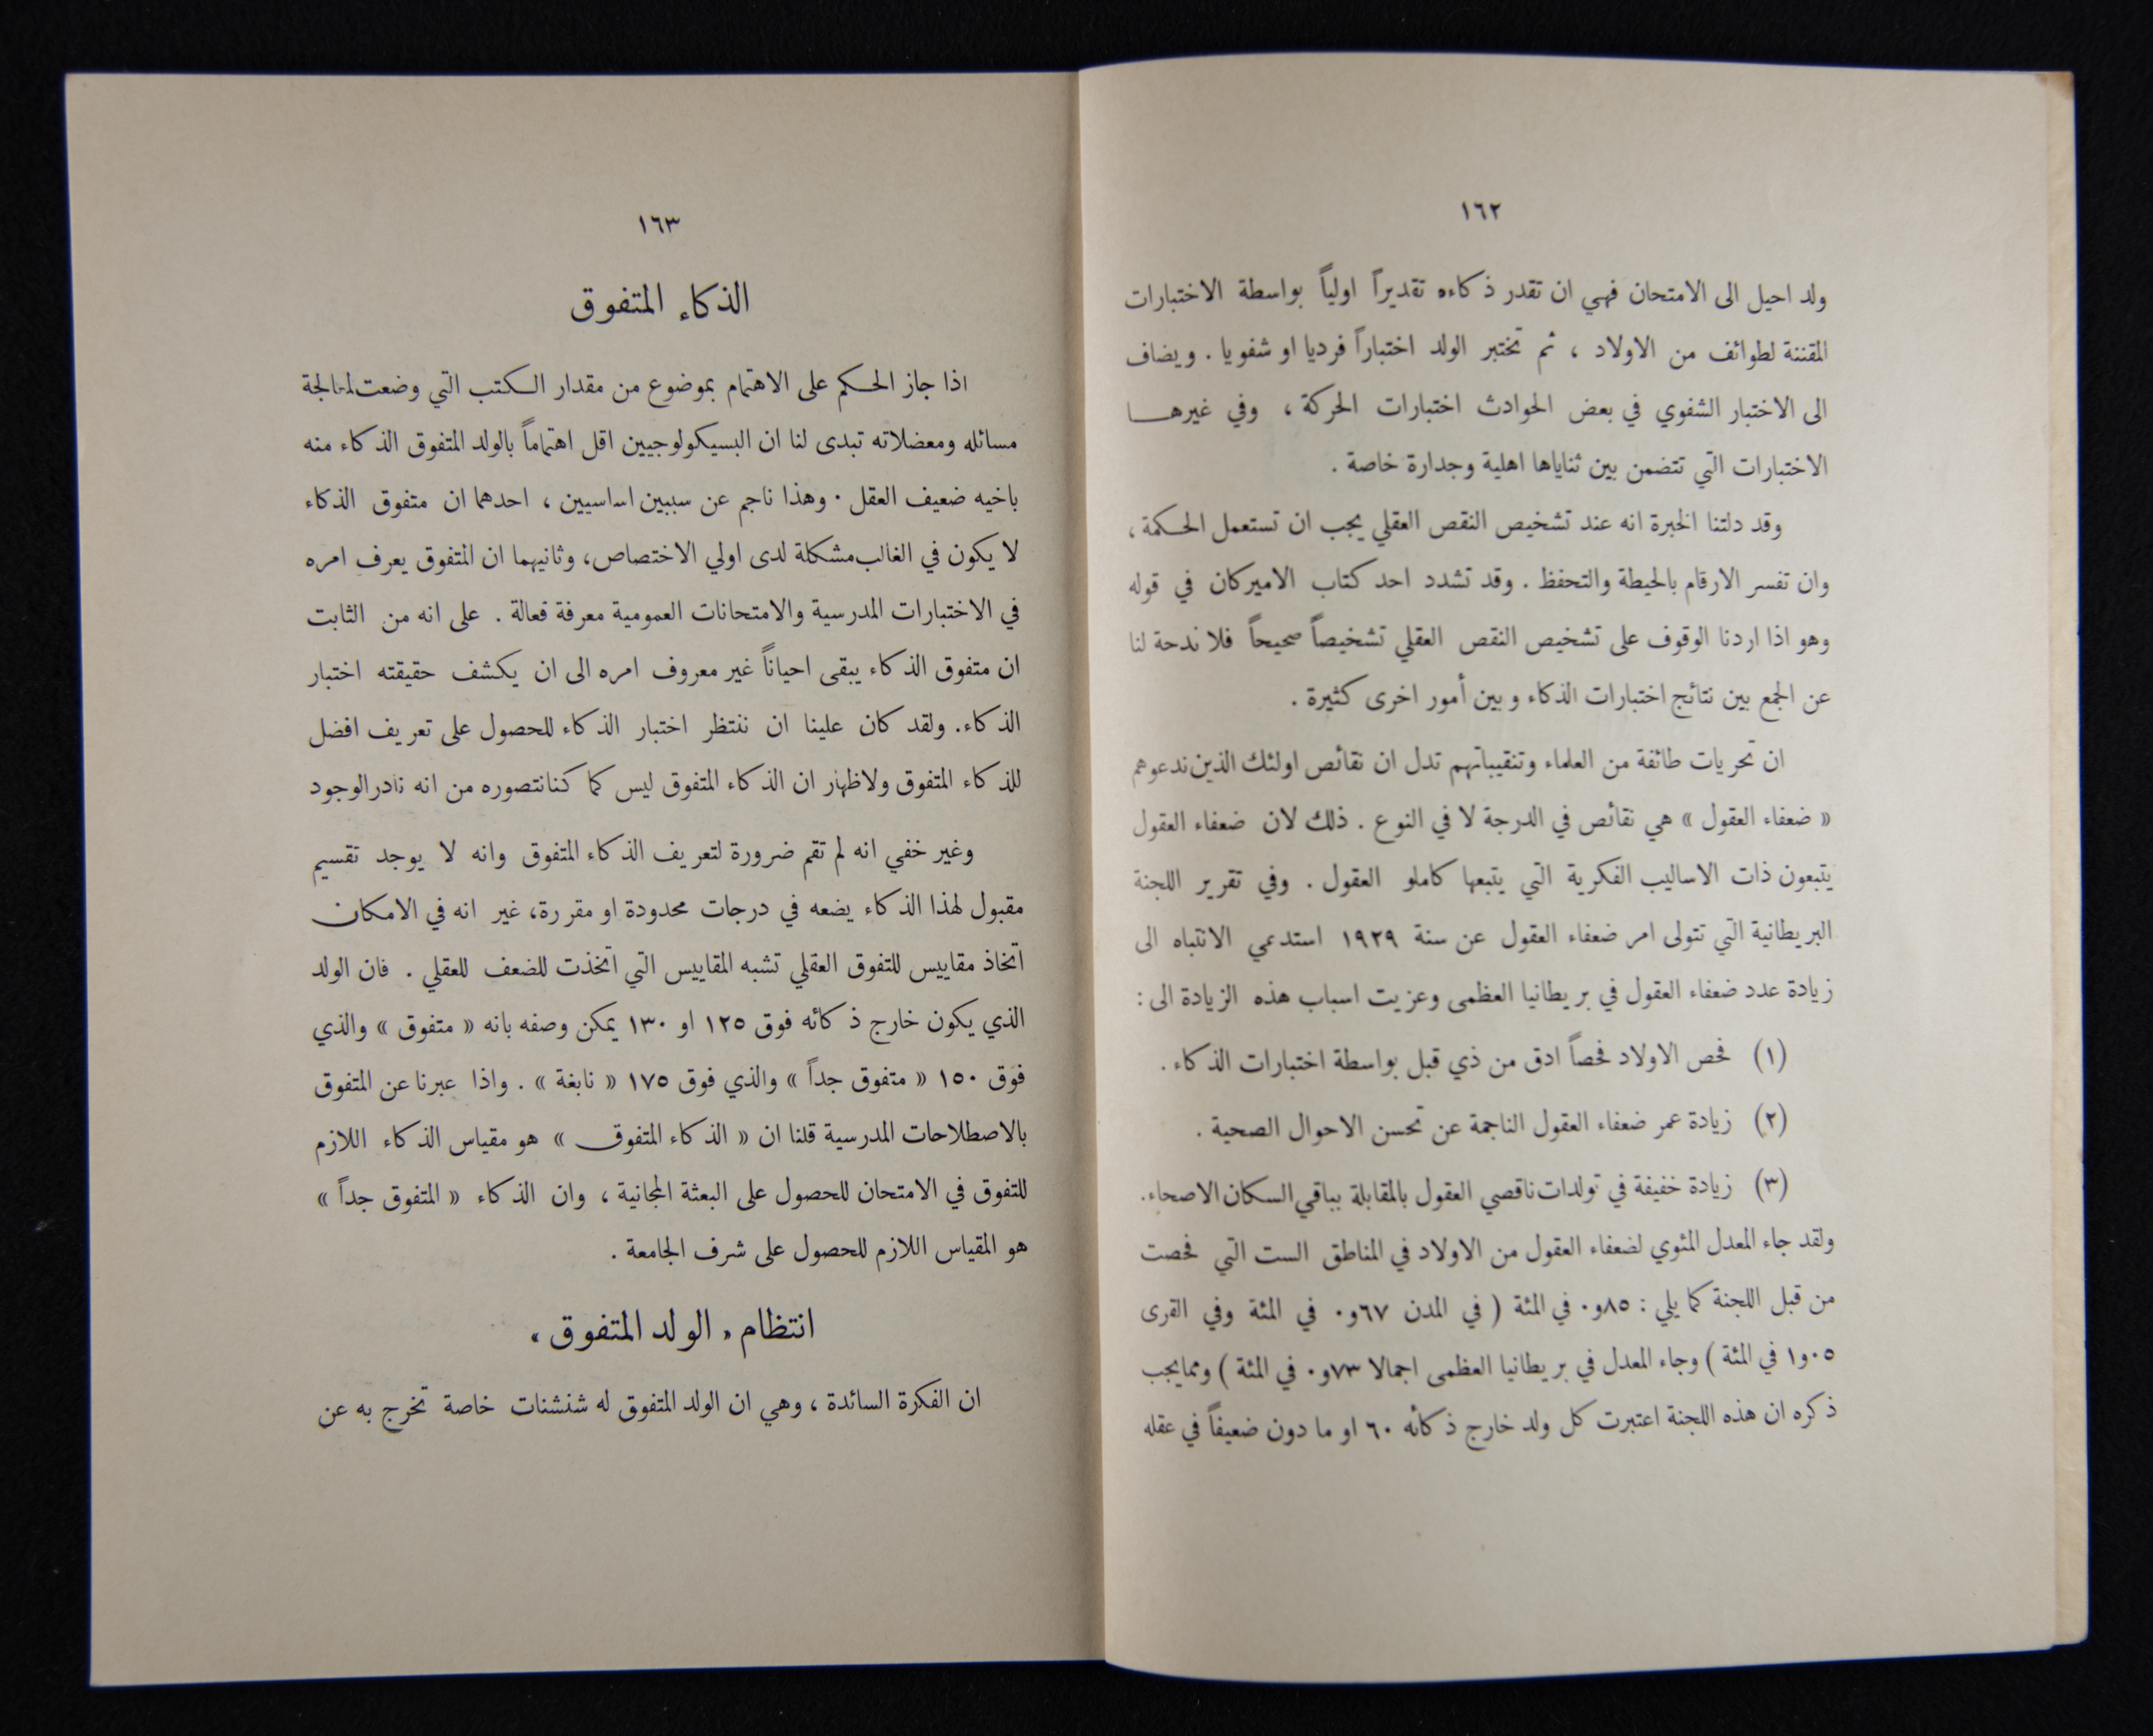 ١٦٢
ولد احيل الى الامتحان فهي ان تقدر ذكاءه تقديراً اولياً بواسطة الاختبارات
المقننة لطوائف من الاولاد ، ثم تختبر الولد اختباراً فرديا او شفويا . ويضاف
الى الاختبار الشفوي في بعض الحوادث اختبارات الحركة ، وفي غيرهـا
الاختبارات التي تتضمن بين ثناياها اهلية وجدارة خاصة .
وقد دلتنا الخبرة انه عند تشخيص النقص العقلي يجب ان تستعمل الحكمة ،
وان تفسر الارقام بالحيطة والتحفظ . وقد تشدد احد كتاب الاميركان في قوله
وهو اذا اردنا الوقوف على تشخيص النقص العقلي تشخيصاً صحيحاً فلا ندحة لنا
عن الجمع بين نتائج اختبارات الذكاء وبين أمور اخرى كثيرة .
ان تحريات طائفة من العلماء وتنقيباتهم تدل ان نقائص اولئك الذين ندعوهم
« ضعفاء العقول » هي نقائص في الدرجة لا في النوع . ذلك لان ضعفاء العقول
يتبعون ذات الاساليب الفكرية التي يتبعها كاملو العقول . وفي تقرير اللجنة
البريطانية التي تتولى امر ضعفاء العقول عن سنة ١٩٢٩ استدعي الانتباه الى
زيادة عدد ضعفاء العقول في بريطانيا العظمى وعزيت اسباب هذه الزيادة الى :
(١) فحص الاولاد فحصاً ادق من ذي قبل بواسطة اختبارات الذكاء .
(٢) زيادة عمر ضعفاء العقول الناجمة عن تحسن الاحوال الصحية .
(٣) زيادة خفيفة في تولدات ناقصي العقول بالمقابلة بباقي السكان الاصحاء.
ولقد جاء المعدل المئوي لضعفاء العقول من الاولاد في المناطق الست التي فحصت
من قبل اللجنة كما يلي : ٨٥و٠ في المئة ( في المدن ٦٧و٠ في المئة وفي القرى
٠٥و١ في المئة ) وجاء المعدل في بريطانيا العظمى اجمالا ٧٣و٠ في المئة ) ومما يجب
ذكره ان هذه اللجنة اعتبرت كل ولد خارج ذكائه ٦٠ او ما دون ضعيفاً في عقله
١٦٣
الذكاء المتفوق
اذا جاز الحكم على الاهتمام بموضوع من مقدار الكتب التي وضعت لمعالجة
مسائله ومعضلاته تبدى لنا ان البسيكولوجيين اقل اهتماماً بالولد المتفوق الذكاء منه
باخيه ضعيف العقل . وهذا ناجم عن سببين اساسيين ، احدهما ان متفوق الذكاء
لا يكون في الغالب مشكلة لدى اولي الاختصاص، وثانيهما ان المتفوق يعرف امره
في الاختبارات المدرسية والامتحانات العمومية معرفة فعالة . على انه من الثابت
ان متفوق الذكاء يبقى احياناً غير معروف امره الى ان يكشف حقيقته اختبار
الذكاء. ولقد كان علينا ان ننتظر اختبار الذكاء للحصول على تعريف افضل
للذكاء المتفوق ولاظهار ان الذكاء المتفوق ليس كما كنا نتصوره من انه نادر الوجود
وغير خفي انه لم تقم ضرورة لتعريف الذكاء المتفوق وانه لا يوجد تقسيم
مقبول لهذا الذكاء يضعه في درجات محدودة او مقررة، غير انه في الامكان
اتخاذ مقاييس للتفوق العقلي تشبه المقاييس التي اتخذت للضعف للعقلي . فان الولد
الذي يكون خارج ذكائه فوق ١٢٥ او ١٣٠ يمكن وصفه بانه « متفوق » والذي
فوق ١٥٠ « متفوق جداً » والذي فوق ١٧٥ « نابغة » . واذا عبرنا عن المتفوق
بالاصطلاحات المدرسية قلنا ان « الذكاء المتفوق » هو مقياس الذكاء اللازم
للتفوق في الامتحان للحصول على البعثة المجانية ، وان الذكاء « المتفوق جداً »
هو المقياس اللازم للحصول على شرف الجامعة .
انتظام « الولد المتفوق »
ان الفكرة السائدة ، وهي ان الولد المتفوق له شنشنات خاصة تخرج به عن